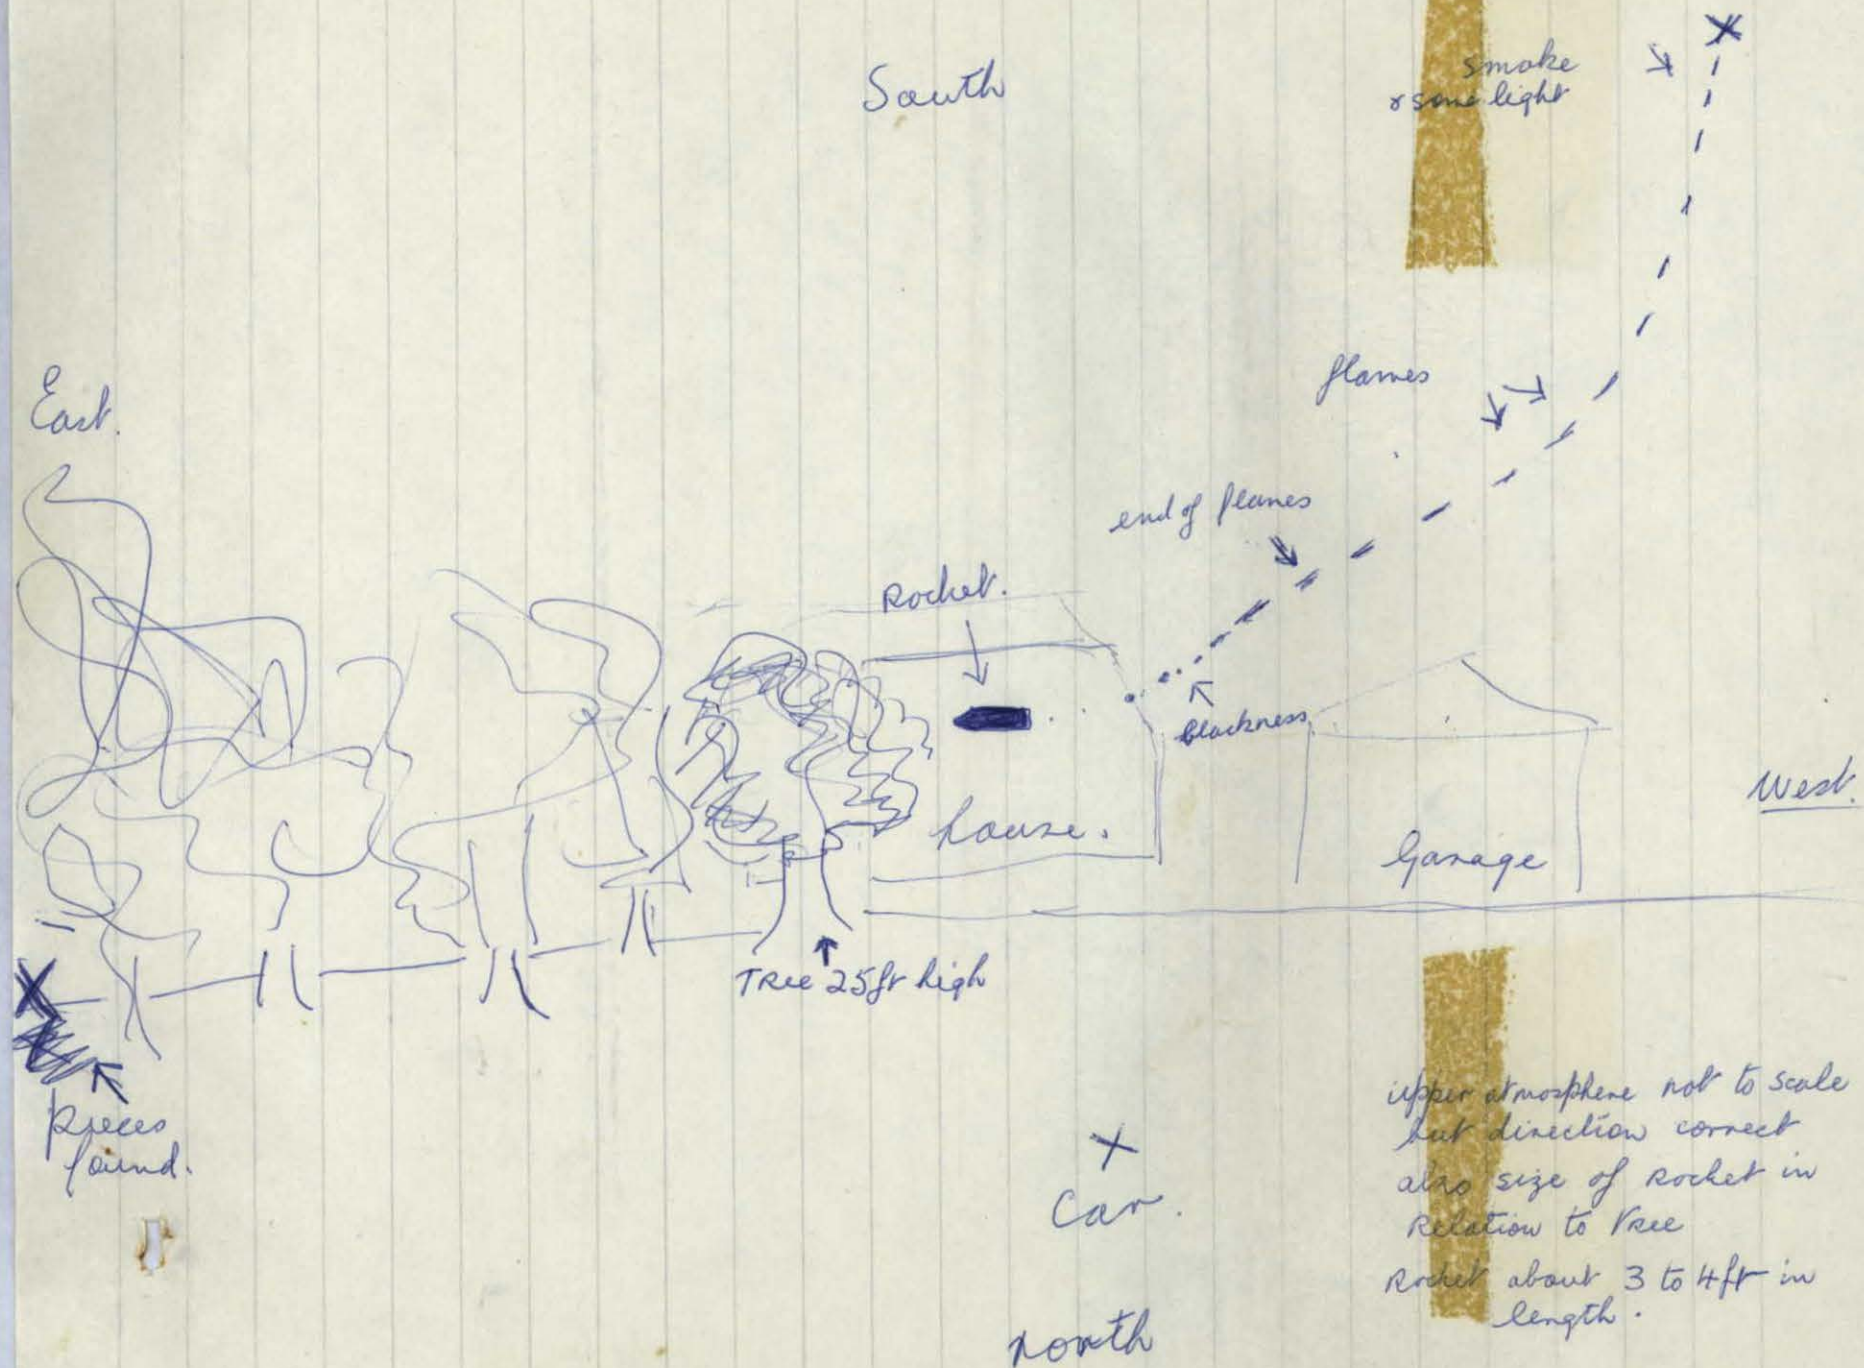 South
smoke
& some light
East.
flames
end of flames
Rocket.
blackness
house.
Garage
West.
TRee 25ft high
pieces
found.
upper atmosphere not to scale
but direction correct
also size of Rocket in
Relation to tree
Rocket about 3 to 4ft in
length.
X
Car.
north